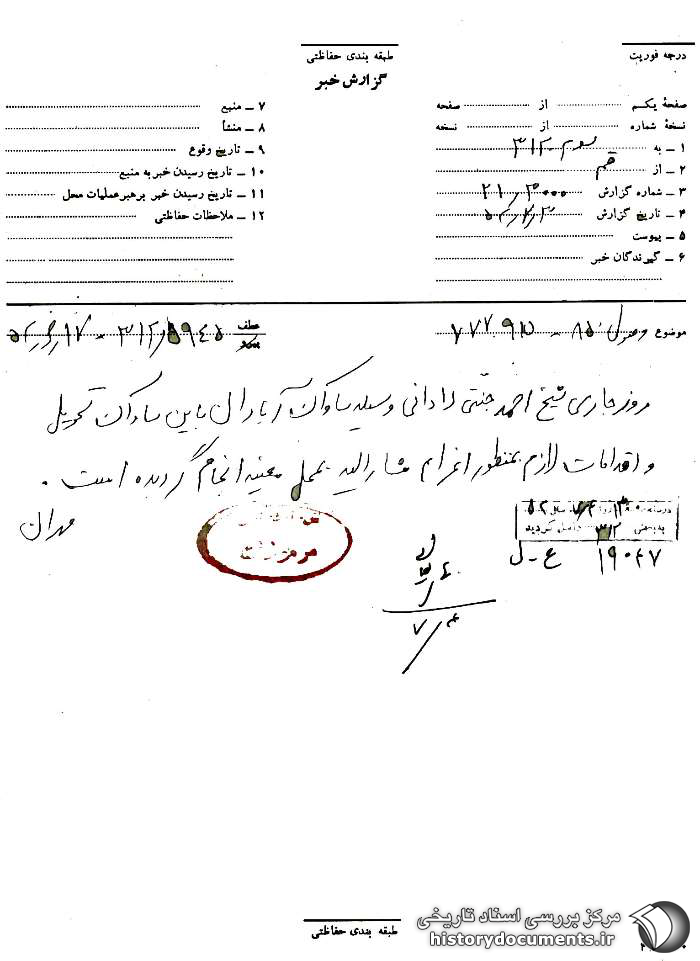 درجه فوریت
طبقه بندی حفاظتی
گزارش خبر
صفحهٔ یکم از صفحه
نسخهٔ شماره از نسخه
۱ ـ به سوم ۳۱۲
۲ ـ از قم
۳ ـ شماره گزارش ۲۱/۳۰۰۰
۴ ـ تاریخ گزارش
۵ ـ پیوست
۶ ـ گیرندگان خبر
۷ ـ منبع
۸ ـ منشأ
۹ ـ تاریخ وقوع
۱۰ ـ تاریخ رسیدن خبر به منبع
۱۱ ـ تاریخ رسیدن خبر برهبر عملیات محل
۱۲ ـ ملاحظات حفاظتی
موضوع
عطف
روز جاری شیخ احمد جنتی لادانی وسیله ساواک آبادان باین ساواک تحویل
و اقدامات لازم بمنظور اعزام مشارالیه بمحل معینه انجام گردیده است .
مهران
بوسیله رمز شد
به بخش ۳۱۲ واصل گردید
۱۹۰۴۷ ع ـ ل
۷/۴
طبقه بندی حفاظتی
مرکز بررسی اسناد تاریخی
historydocuments.ir